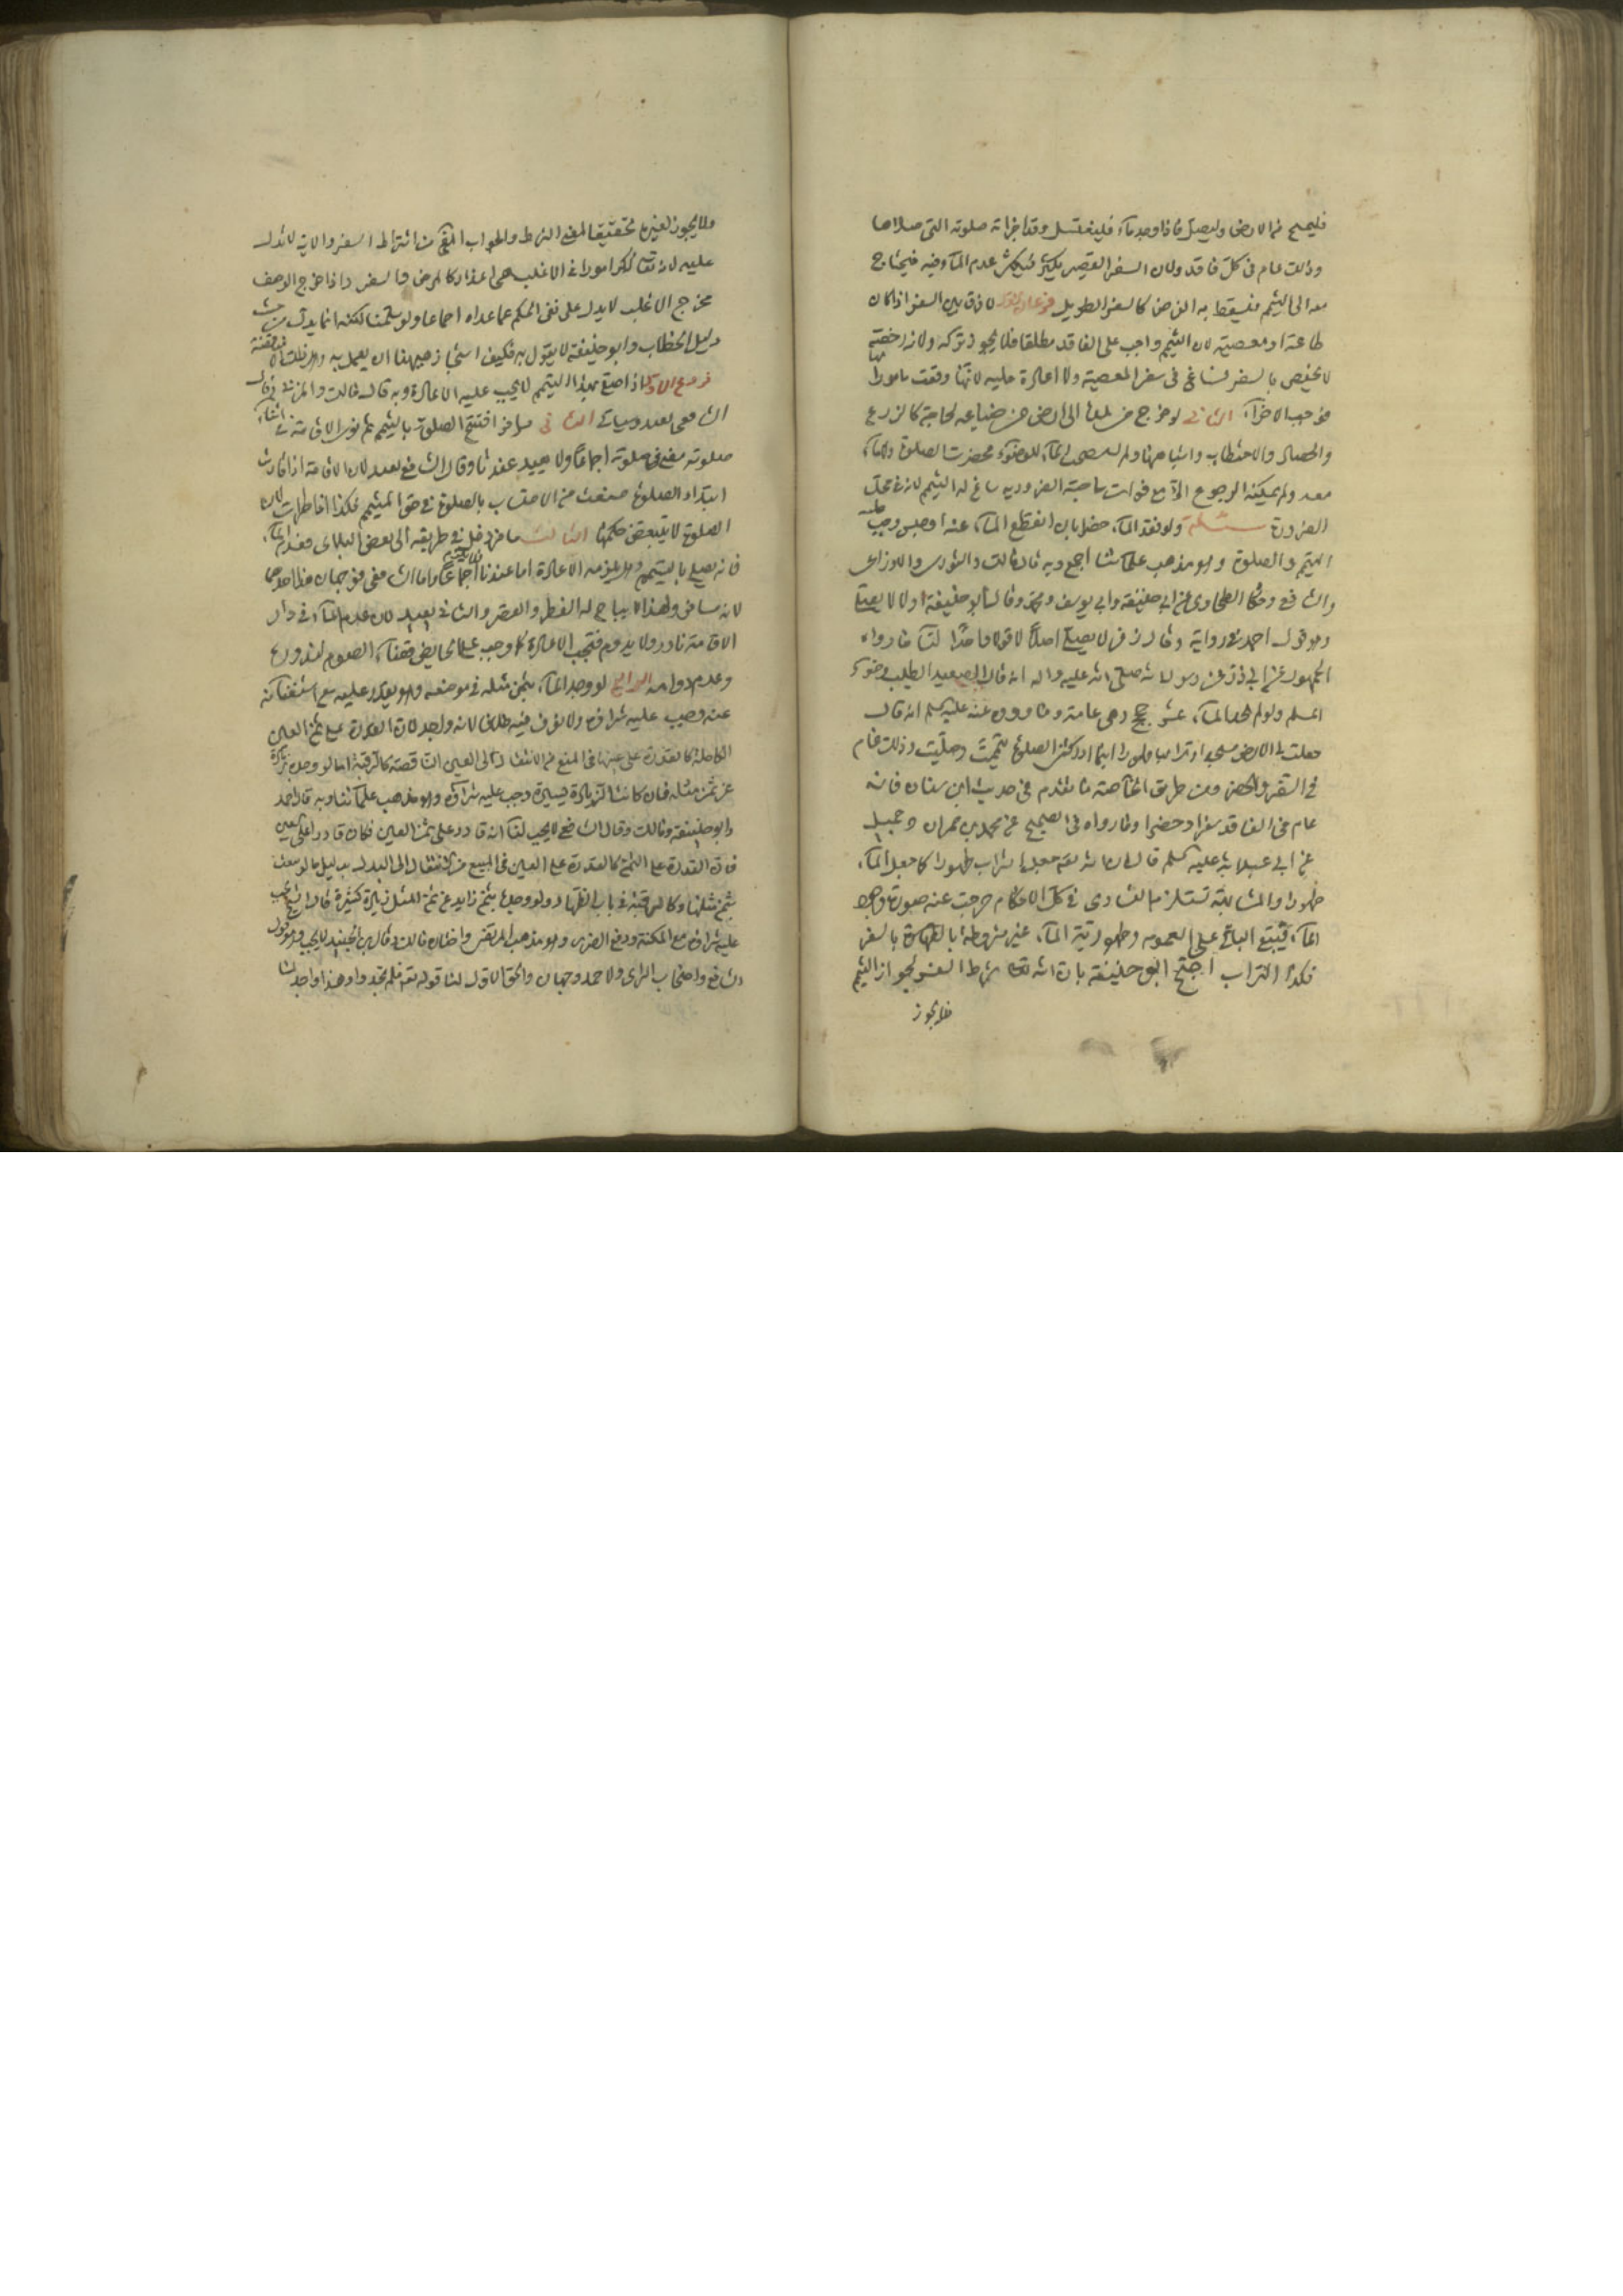 فليمسح من الارض وليصل فاذا وجد ماء فليغتسل وقد اجزأته صلوته التي صلاها
وذلك عام في كل فاقد ولان السفر القصير يكثر فيكثر عدم الماء فيه فيحتاج
معه الى التيمم فيسقط به الفرض كالسفر الطويل فرعان لا فرق بين السفر اذا كان
طاعة او معصية لان التيمم واجب على الفاقد مطلقا فلا يجوز تركه ولانه رخصة
لا يختص بالسفر فساغ في سفر المعصية ولا اعادة عليه لانها وقعت مامورا بها
فوجب الاجزاء الثاني لو خرج من الى ارض من ضياعه لحاجة كالزرع
والحصاد والاحتطاب واشباهها ولم الماء للوضوء فحضرت الصلوة ولا ماء
معه ولم يمكنه الرجوع الا مع فوات حاجته الضرورية ساغ له التيمم لانه في محل
الضرورة مسئلة ولو فقد الماء حضرا بان انقطع الماء عنه او حبس وجب عليه
التيمم والصلوة وهو مذهب علمائنا اجمع وبه قال مالك والثوري والاوزاعي
والشافعي وحكى الطحاوي عن ابي حنيفة وابي يوسف ومحمد وقال ابو حنيفة اولا لا يصلي
وهو قول احمد في رواية وقال زفر لا يصلي اصلا قولا واحدا لنا ما رواه
الجمهور عن ابي ذر عن رسول الله صلى الله عليه واله انه قال الصعيد الطيب وضوء
المسلم ولو لم يجد الماء عشر حجج وهي عامة وما رووه عنه عليه السلام انه قال
جعلت لي الارض مسجدا وترابها طهورا اينما ادركتني الصلوة تيممت وصليت وذلك عام
في السفر والحضر ومن طريق الخاصة ما تقدم في حديث ابن سنان فانه
عام في الفاقد سفرا وحضرا وما رواه في الصحيح عن محمد بن حمران وجميل
عن ابي عبد الله عليه السلام قال ان الله تعالى جعل التراب طهورا كما جعل الماء
طهورا والمشابهة تستلزم التساوي في كل الاحكام خرجت عنه صورة وجود
الماء فيبقى الباقي على العموم وطهورية الماء غير مشروطة بالسفر
فكذا التراب احتج ابو حنيفة بان الله تعالى شرط السفر لجواز التيمم
فلا يجوز
فلا يجوز لغيره تحقيقا لمعنى الشرط والجواب المنع من اشتراط السفر والاية لا تدل
عليه لانه تعالى ذكر امورا في الاغلب هي اعذار كالمرض والسفر واذا خرج الوصف
مخرج الاغلب لا يدل على نفي الحكم عما عداه اجماعا ولو سلمنا لكنه انما يدل من حيث
دليل الخطاب وابو حنيفة لا يقول به فكيف استجاز ههنا ان يعمل به وهل ذلك الا مناقضة
فروع الاول اذا صلى بهذا التيمم لا يجب عليه الاعادة وبه قال مالك والمزني وقال
الشافعي يعيد وسياتي الثاني مسافر افتتح الصلوة بالتيمم ثم نوى الاقامة في اثناء
صلوته مضى في صلوته اجماعا ولا يعيد عندنا وقال الشافعي يعيد لان الاقامة اذا قارنت
ابتداء الصلوة منعت من الاحتساب بالصلوة في حق المتيمم فكذا اذا طرأت لان
الصلوة لا يتبعض حكمها الثالث مسافر دخل في طريقه الى بعض البلدان فعدم الماء
فانه يصلي بالتيمم ولا يلزمه الاعادة اما عندنا فاجماعا واما الشافعي فوجهان هذا احدهما
لانه مسافر ولهذا يباح له الفطر والقصر والثاني يعيد لان عدم الماء في دار
الاقامة نادر ولا يدوم فتجب الاعادة كما وجب على الحائض قضاء الصوم لندوره
وعدم دوامه الرابع لو وجد الماء بثمن مثله في موضعه وهو يقدر عليه مع استغنائه
عنه وجب عليه شراؤه ولا نعرف فيه خلافا لانه واجد لان القدرة على ثمن العين
الكاملة كالقدرة على عينها في المنع من الانتقال الى العين الناقصة كالرقبة اما لو وجده بزيادة
عن ثمن مثله فان كانت الزيادة يسيرة وجب عليه شراؤه وهو مذهب علمائنا وبه قال احمد
وابو حنيفة ومالك وقال الشافعي لا يجب لنا انه قادر على ثمن العين فكان قادرا على العين
فان القدرة على الثمن كالقدرة على العين في المنع من الانتقال الى البدل بدليل ما لو بيعت
بثمن مثلها وكالرقبة في باب الظهار ولو وجده بثمن زايد عن ثمن المثل زيادة كثيرة قال الشيخ يجب
عليه شراؤه مع المكنة ودفع الضرر وهو مذهب المرتضى واختاره مالك وقال ابن الجنيد لا يجب وهو قول
الشافعي واصحاب الراي ولاحمد وجهان والحق الاول لنا قوله تعالى فلم تجدوا وهذا واجد لنا